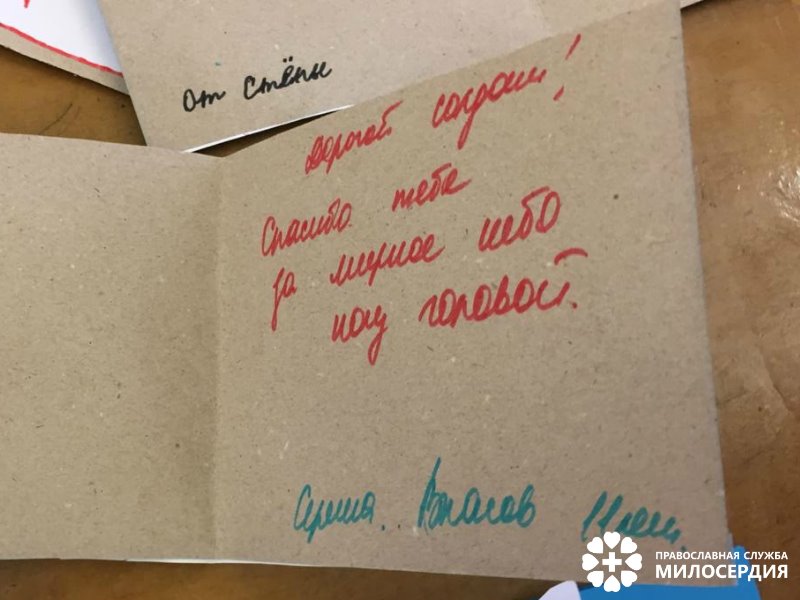 От Стёпы
Дорогой солдат!
Спасибо тебе
за мирное небо
над головой.
Сережа. Власов 11 лет
ПРАВОСЛАВНАЯ СЛУЖБА
МИЛОСЕРДИЯ